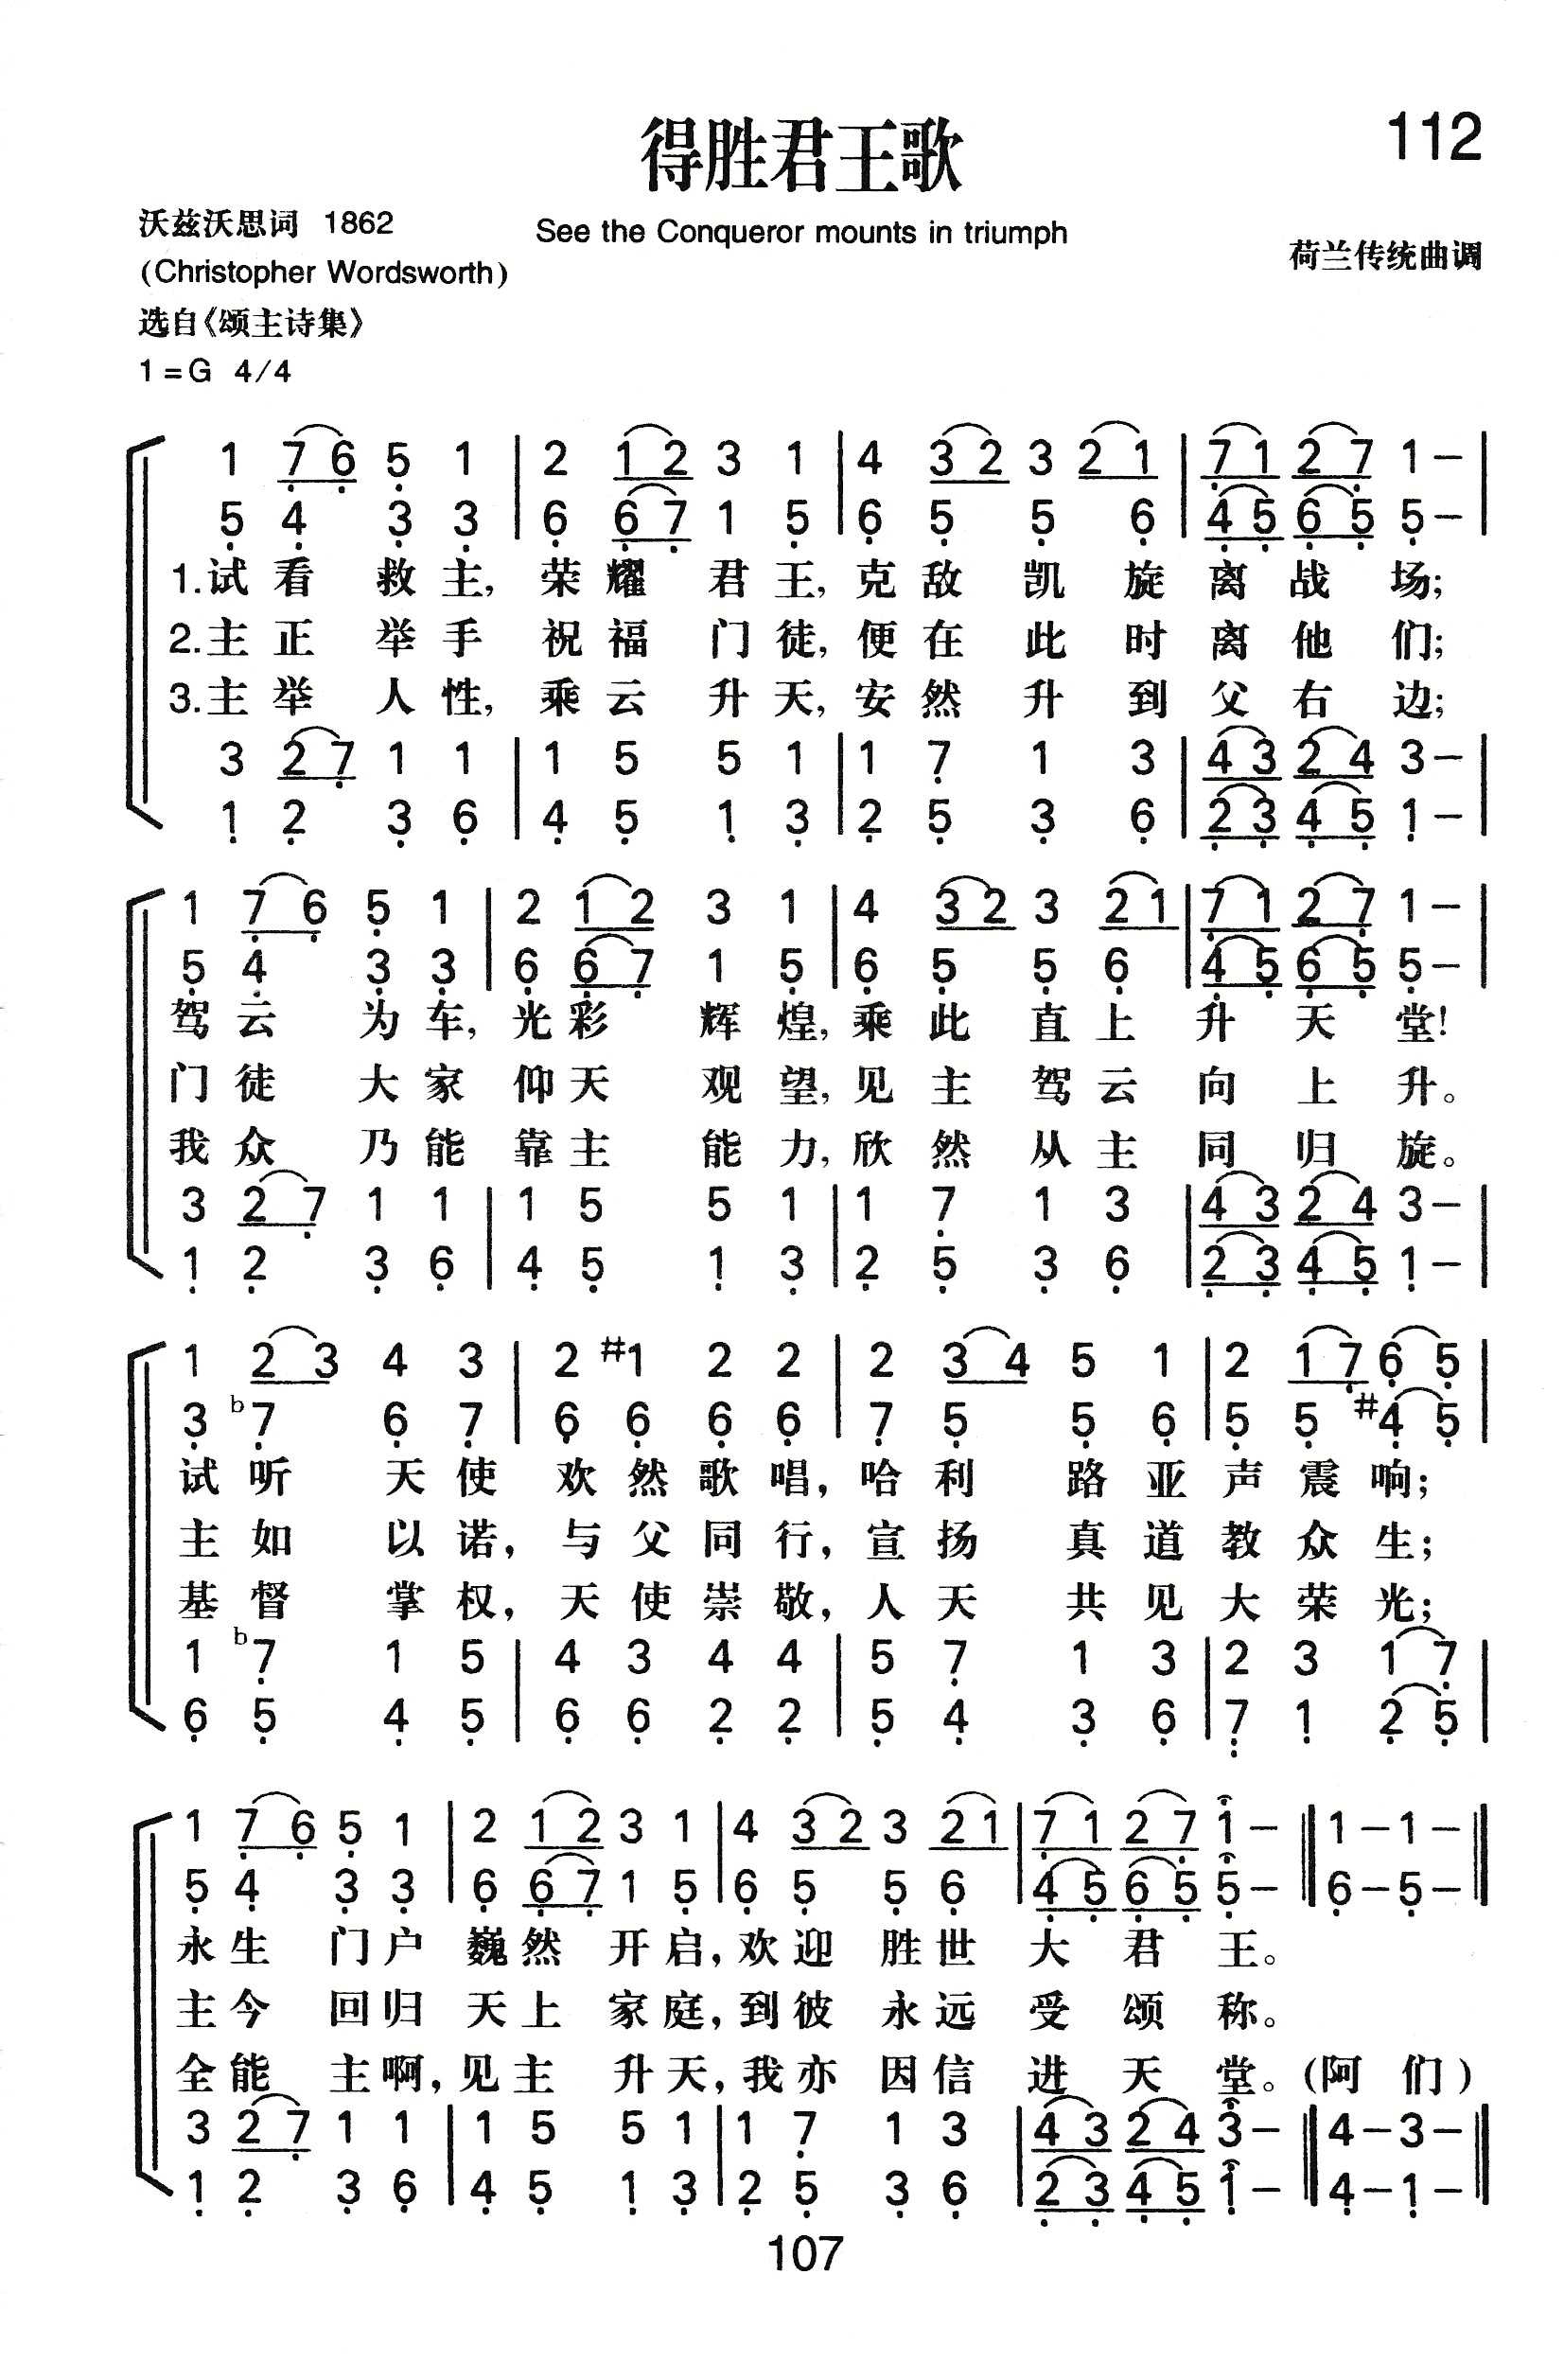 112
得胜君王歌
沃兹沃思词 1862
See the Conqueror mounts in triumph
(Christopher Wordsworth)
荷兰传统曲调
选自《颂主诗集》
1=G 4/4
1 7 6 5 1 | 2 1 2 3 1 | 4 3 2 3 2 1 | 7 1 2 7 1 – |
5 4 3 3 | 6 6 7 1 5 | 6 5 5 6 | 4 5 6 5 5 – |
1.试看救主,荣耀君王,克敌凯旋离战场;
2.主正举手祝福门徒,便在此时离他们;
3.主举人性,乘云升天,安然升到父右边;
3 2 7 1 1 | 1 5 5 1 | 1 7 1 3 | 4 3 2 4 3 – |
1 2 3 6 | 4 5 1 3 | 2 5 3 6 | 2 3 4 5 1 – |
1 7 6 5 1 | 2 1 2 3 1 | 4 3 2 3 2 1 | 7 1 2 7 1 – |
5 4 3 3 | 6 6 7 1 5 | 6 5 5 6 | 4 5 6 5 5 – |
驾云为车,光彩辉煌,乘此直上升天堂!
门徒大家仰天观望,见主驾云向上升。
我众乃能靠主能力,欣然从主同归旋。
3 2 7 1 1 | 1 5 5 1 | 1 7 1 3 | 4 3 2 4 3 – |
1 2 3 6 | 4 5 1 3 | 2 5 3 6 | 2 3 4 5 1 – |
1 2 3 4 3 | 2 #1 2 2 | 2 3 4 5 1 | 2 1 7 6 5 |
3 b7 6 7 | 6 6 6 6 | 7 5 5 6 | 5 5 #4 5 |
试听天使欢然歌唱,哈利路亚声震响;
主如以诺,与父同行,宣扬真道教众生;
基督掌权,天使崇敬,人天共见大荣光;
1 b7 1 5 | 4 3 4 4 | 5 7 1 3 | 2 3 1 7 |
6 5 4 5 | 6 6 2 2 | 5 4 3 6 | 7 1 2 5 |
1 7 6 5 1 | 2 1 2 3 1 | 4 3 2 3 2 1 | 7 1 2 7 1 – ‖ 1 – 1 – ‖
5 4 3 3 | 6 6 7 1 5 | 6 5 5 6 | 4 5 6 5 5 – ‖ 6 – 5 – ‖
永生门户巍然开启,欢迎胜世大君王。
主今回归天上家庭,到彼永远受颂称。
全能主啊,见主升天,我亦因信进天堂。(阿们)
3 2 7 1 1 | 1 5 5 1 | 1 7 1 3 | 4 3 2 4 3 – ‖ 4 – 3 – ‖
1 2 3 6 | 4 5 1 3 | 2 5 3 6 | 2 3 4 5 1 – ‖ 4 – 1 – ‖
107